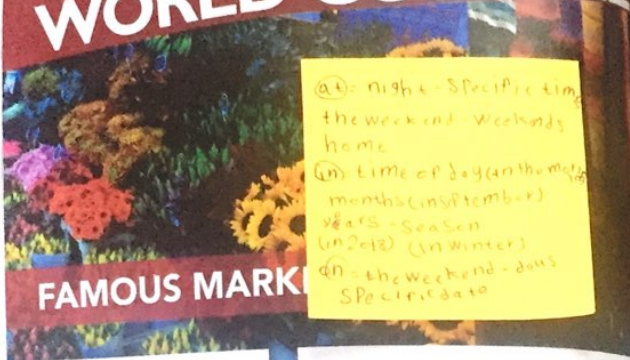 WORLD
FAMOUS MARK
at = night - specific time
the weekend - weekends
home
in = time of day (in the morn
months (in sptember)
years - season
(in 2018) (in winter)
on = the weekend - days
specific date